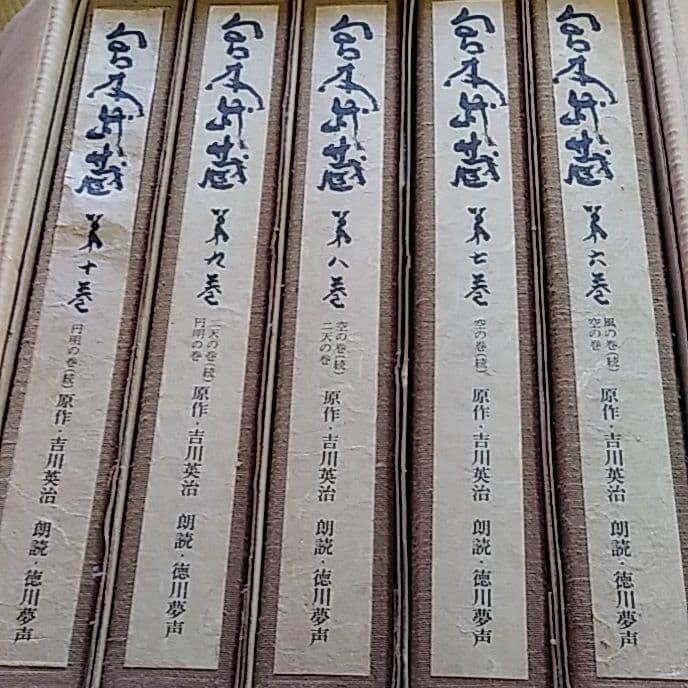 宮本武蔵
第六巻
風の巻(続)
空の巻
原作・吉川英治 朗読・徳川夢声
宮本武蔵
第七巻
空の巻(続)
原作・吉川英治 朗読・徳川夢声
宮本武蔵
第八巻
空の巻(続)
二天の巻
原作・吉川英治 朗読・徳川夢声
宮本武蔵
第九巻
二天の巻(続)
円明の巻
原作・吉川英治 朗読・徳川夢声
宮本武蔵
第十巻
円明の巻(続)
原作・吉川英治 朗読・徳川夢声